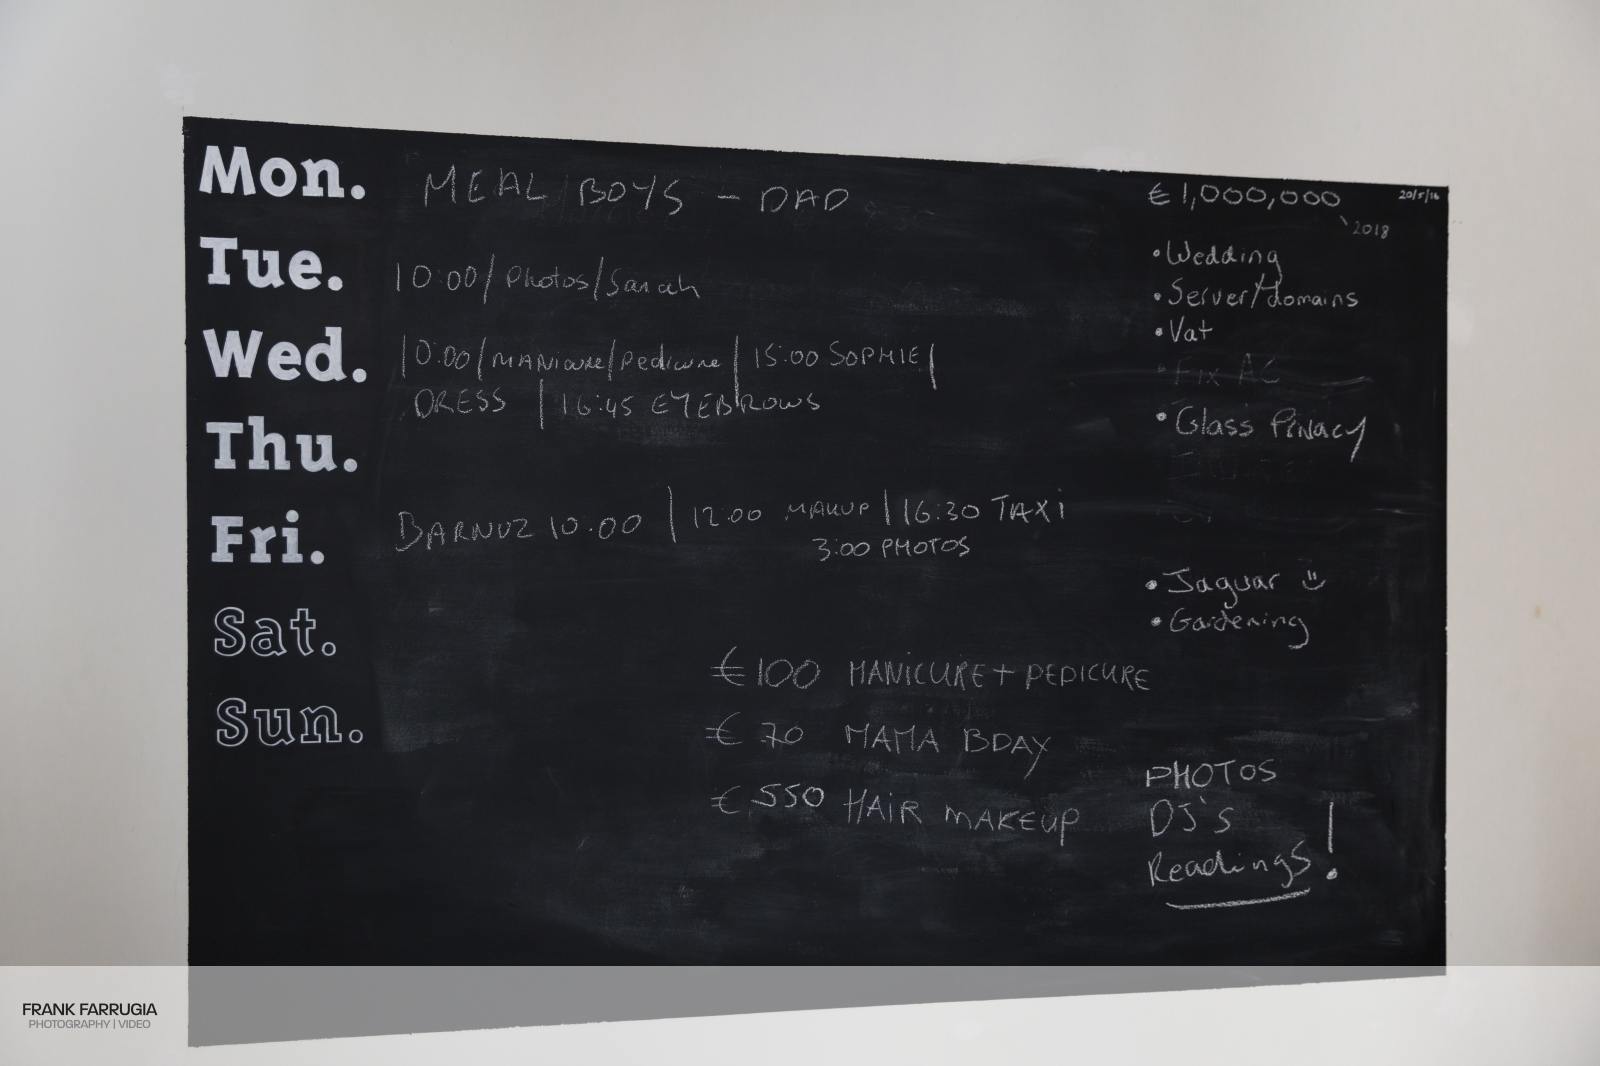 Mon. MEAL BOYS - DAD
Tue. 10:00/Photos/Sarah
Wed. 10:00/MANicure/Pedicure | 15:00 SOPHIE|
DRESS | 16:45 EYEBROWS
Thu.
Fri. BARNUZ 10.00 | 12:00 MAKUP | 16:30 TAXi
3:00 PHOTOS
Sat.
Sun.
€ 1,000,000
20/5/16
2018
• Wedding
• Server/domains
• Vat
• Fix AC
• Glass Privacy
• Jaguar
• Gardening
€100 MANiCURE + PEDICURE
€ 70 MAMA BDAY
€ 550 HAIR MAKEUP
PHOTOS
DJ'S
Readings!
FRANK FARRUGIA
PHOTOGRAPHY | VIDEO